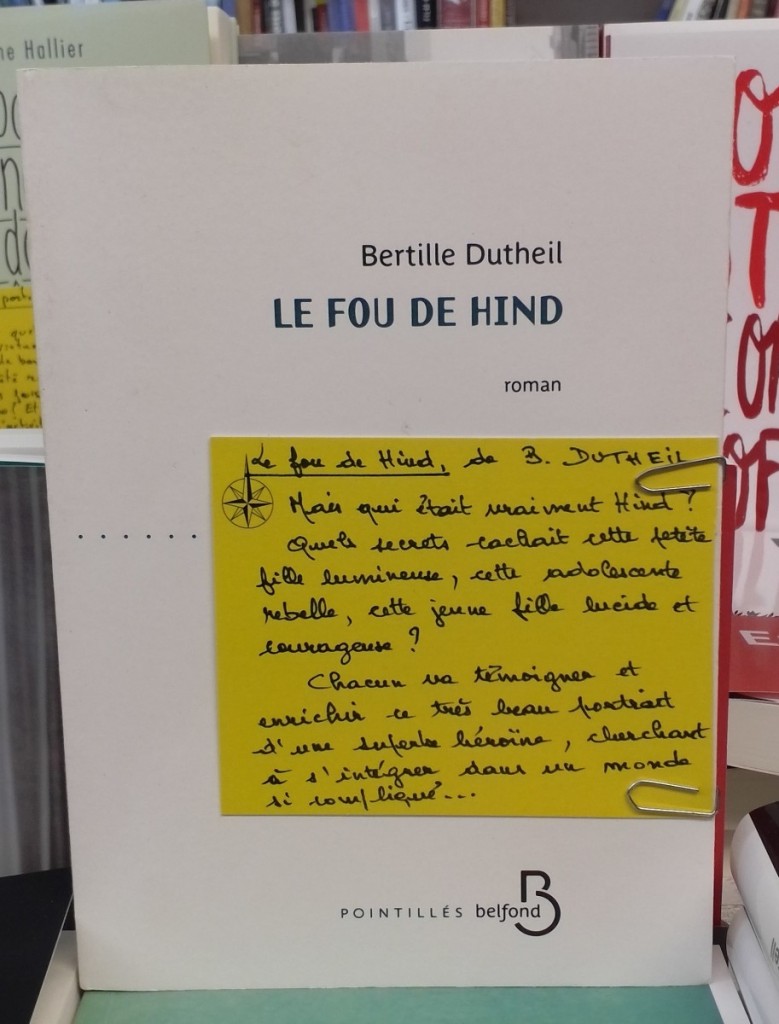 ne Hallier
Bertille Dutheil
LE FOU DE HIND
roman
Le fou de Hind, de B. DUTHEIL
Mais qui était vraiment Hind ?
Quels secrets cachait cette petite
fille lumineuse, cette adolescente
rebelle, cette jeune fille lucide et
courageuse ?
Chacun va témoigner et
enrichir ce très beau portrait
d'une superbe héroïne, cherchant
à s'intégrer dans un monde
si compliqué...
POINTILLÉS belfond